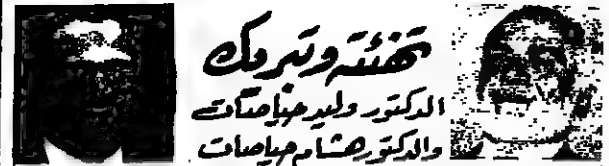 تهنئة وتبريك
الدكتور وليد حياصات
والدكتور هشام حياصات